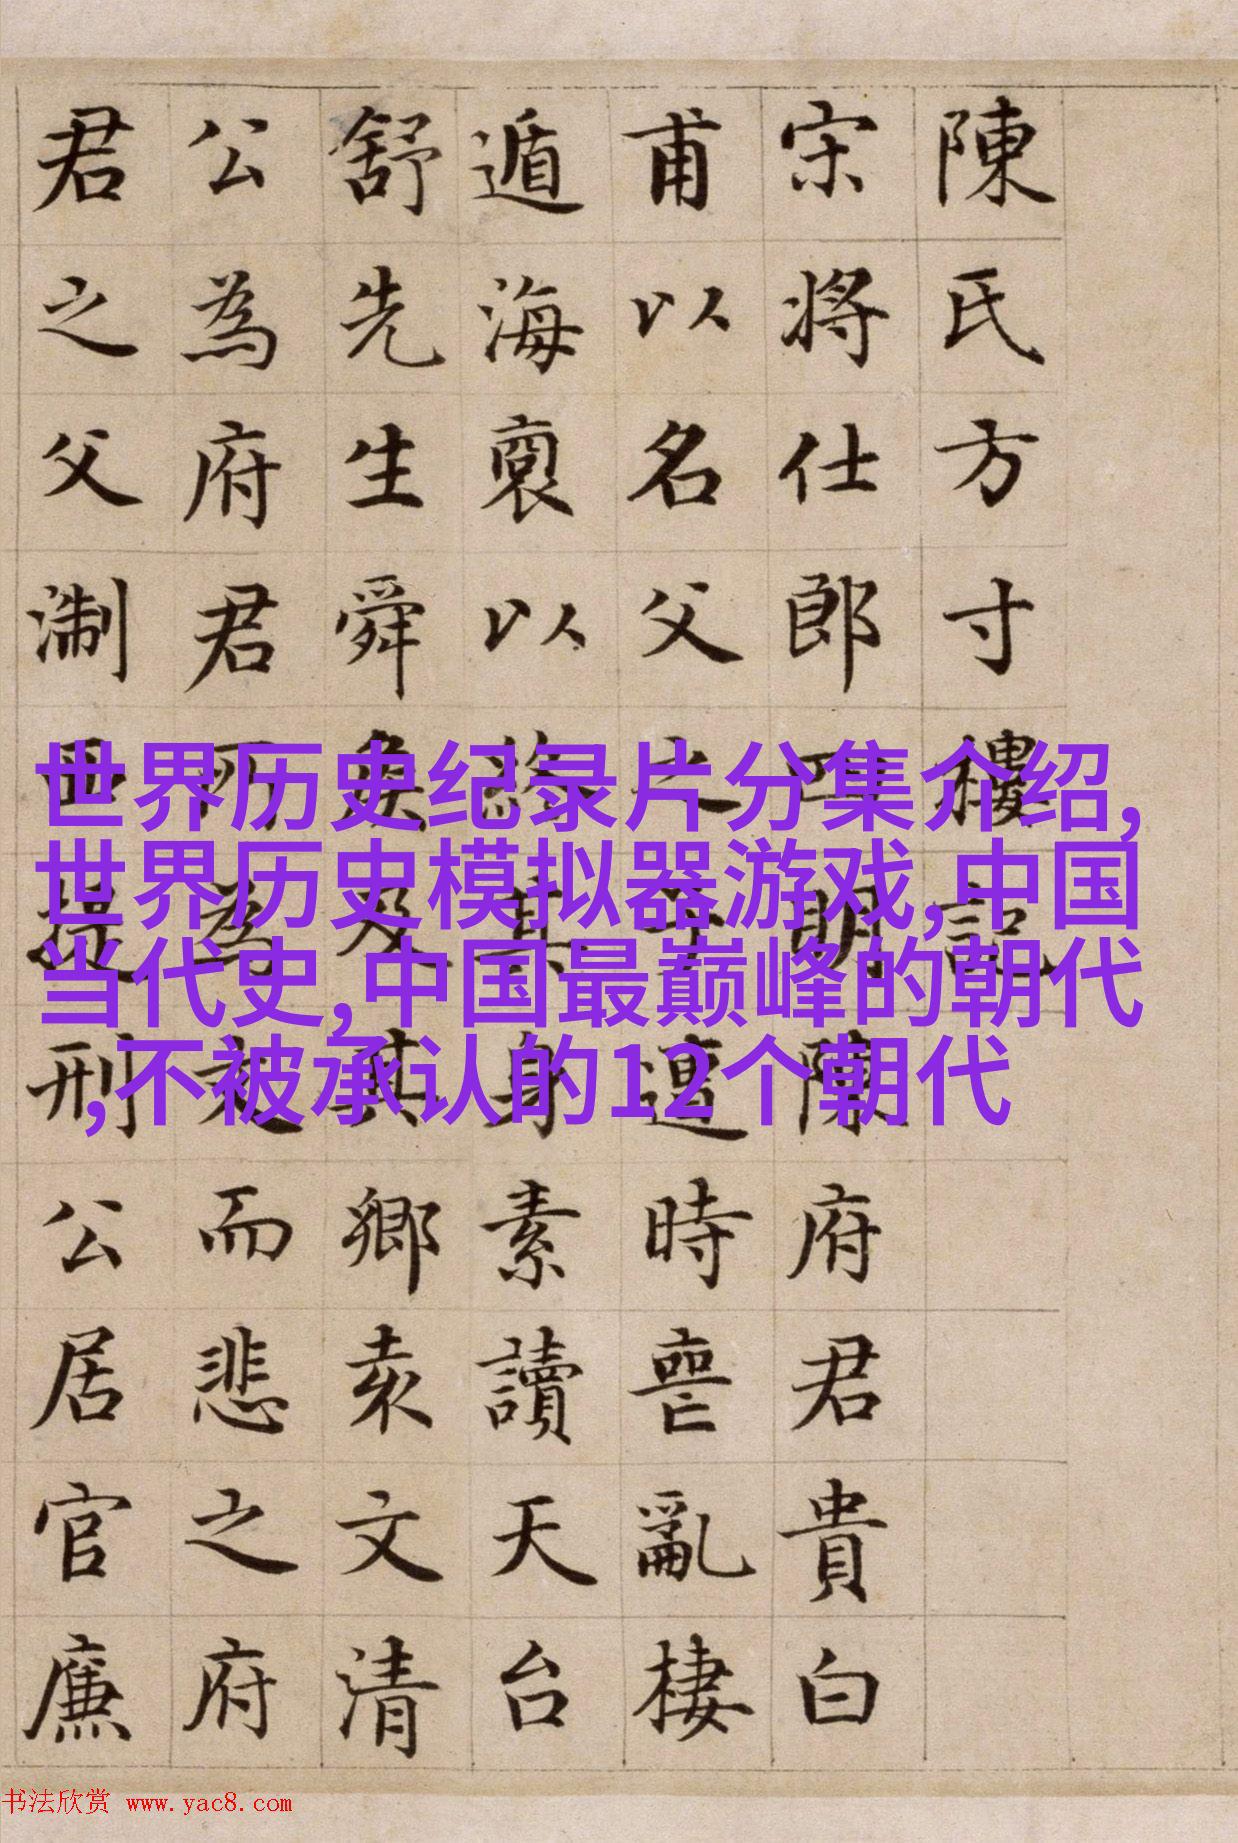 陳氏方寸樓記
宋將仕郎四明陳府君貴白
甫以名父之子遭時喪亂棲
遁海裔以其身素讀天台
舒先生舜侯及其鄉袁文清
公為府君所為表而悲之府
君之父淛西提刑公居官廉
世界历史纪录片分集介绍,
世界历史模拟器游戏,中国
当代史,中国最巅峰的朝代
,不被承认的12个朝代
书法欣赏 www.yac8.com